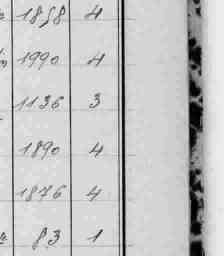 1858 4
1990 4
1136 3
1890 4
1876 4
83 1